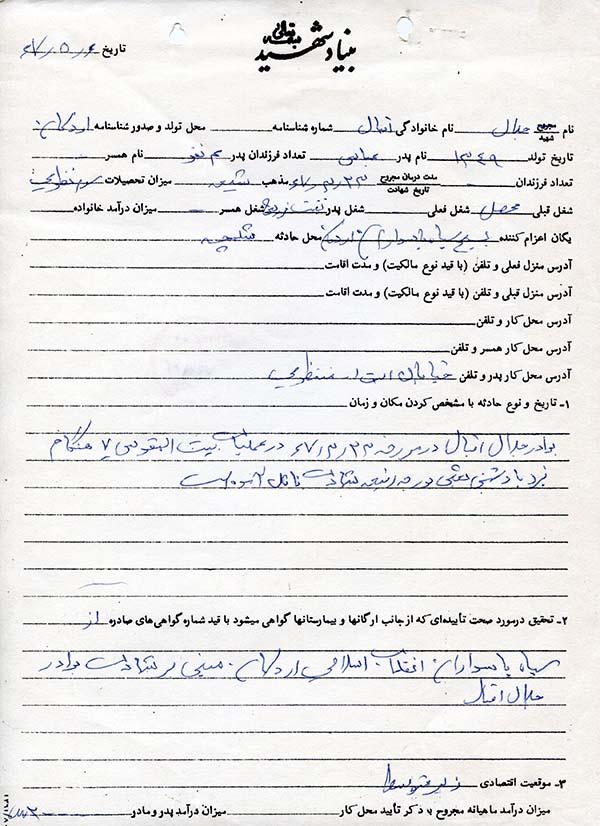 بسمه تعالی
بنیاد شهید
تاریخ ۶۷/۵/۶
نام مجروح شهید جلال نام خانوادگی اقبال شماره شناسنامه محل تولد و صدور شناسنامه اردکان
تاریخ تولد ۱۳۴۹ نام پدر عباس تعداد فرزندان پدر ۳ نفر نام همسر
تعداد فرزندان مدت درمان مجروح تاریخ شهادت ۶۷/۳/۲۳ مذهب شیعه میزان تحصیلات سوم نظری
شغل قبلی محصل شغل فعلی شغل پدر نفت فروش شغل همسر میزان درآمد خانواده
یگان اعزام کننده بسیج سپاه پاسداران اردکان محل حادثه شلمچه
آدرس منزل فعلی و تلفن (با قید نوع مالکیت) و مدت اقامت
آدرس منزل قبلی و تلفن (با قید نوع مالکیت) و مدت اقامت
آدرس محل کار و تلفن
آدرس محل کار همسر و تلفن
آدرس محل کار پدر و تلفن خیابان منتظری
۱- تاریخ و نوع حادثه با مشخص کردن مکان و زمان
برادر جلال اقبال در مورخه ۶۷/۳/۲۳ در عملیات بیت المقدس ۷ هنگام
نبرد با دشمن بعثی درجه رفیعه شهادت نائل آمده است
۲- تحقیق درمورد صحت تأییدهای که ازجانب ارگانها و بیمارستانها گواهی میشود با قید شماره گواهی‌های صادره از
سپاه پاسداران انقلاب اسلامی اردکان مبنی بر شهادت برادر
جلال اقبال
۳- موقعیت اقتصادی زیر متوسط
میزان درآمد ماهیانه مجروح با ذکر تأیید محل کار میزان درآمد پدر و مادر